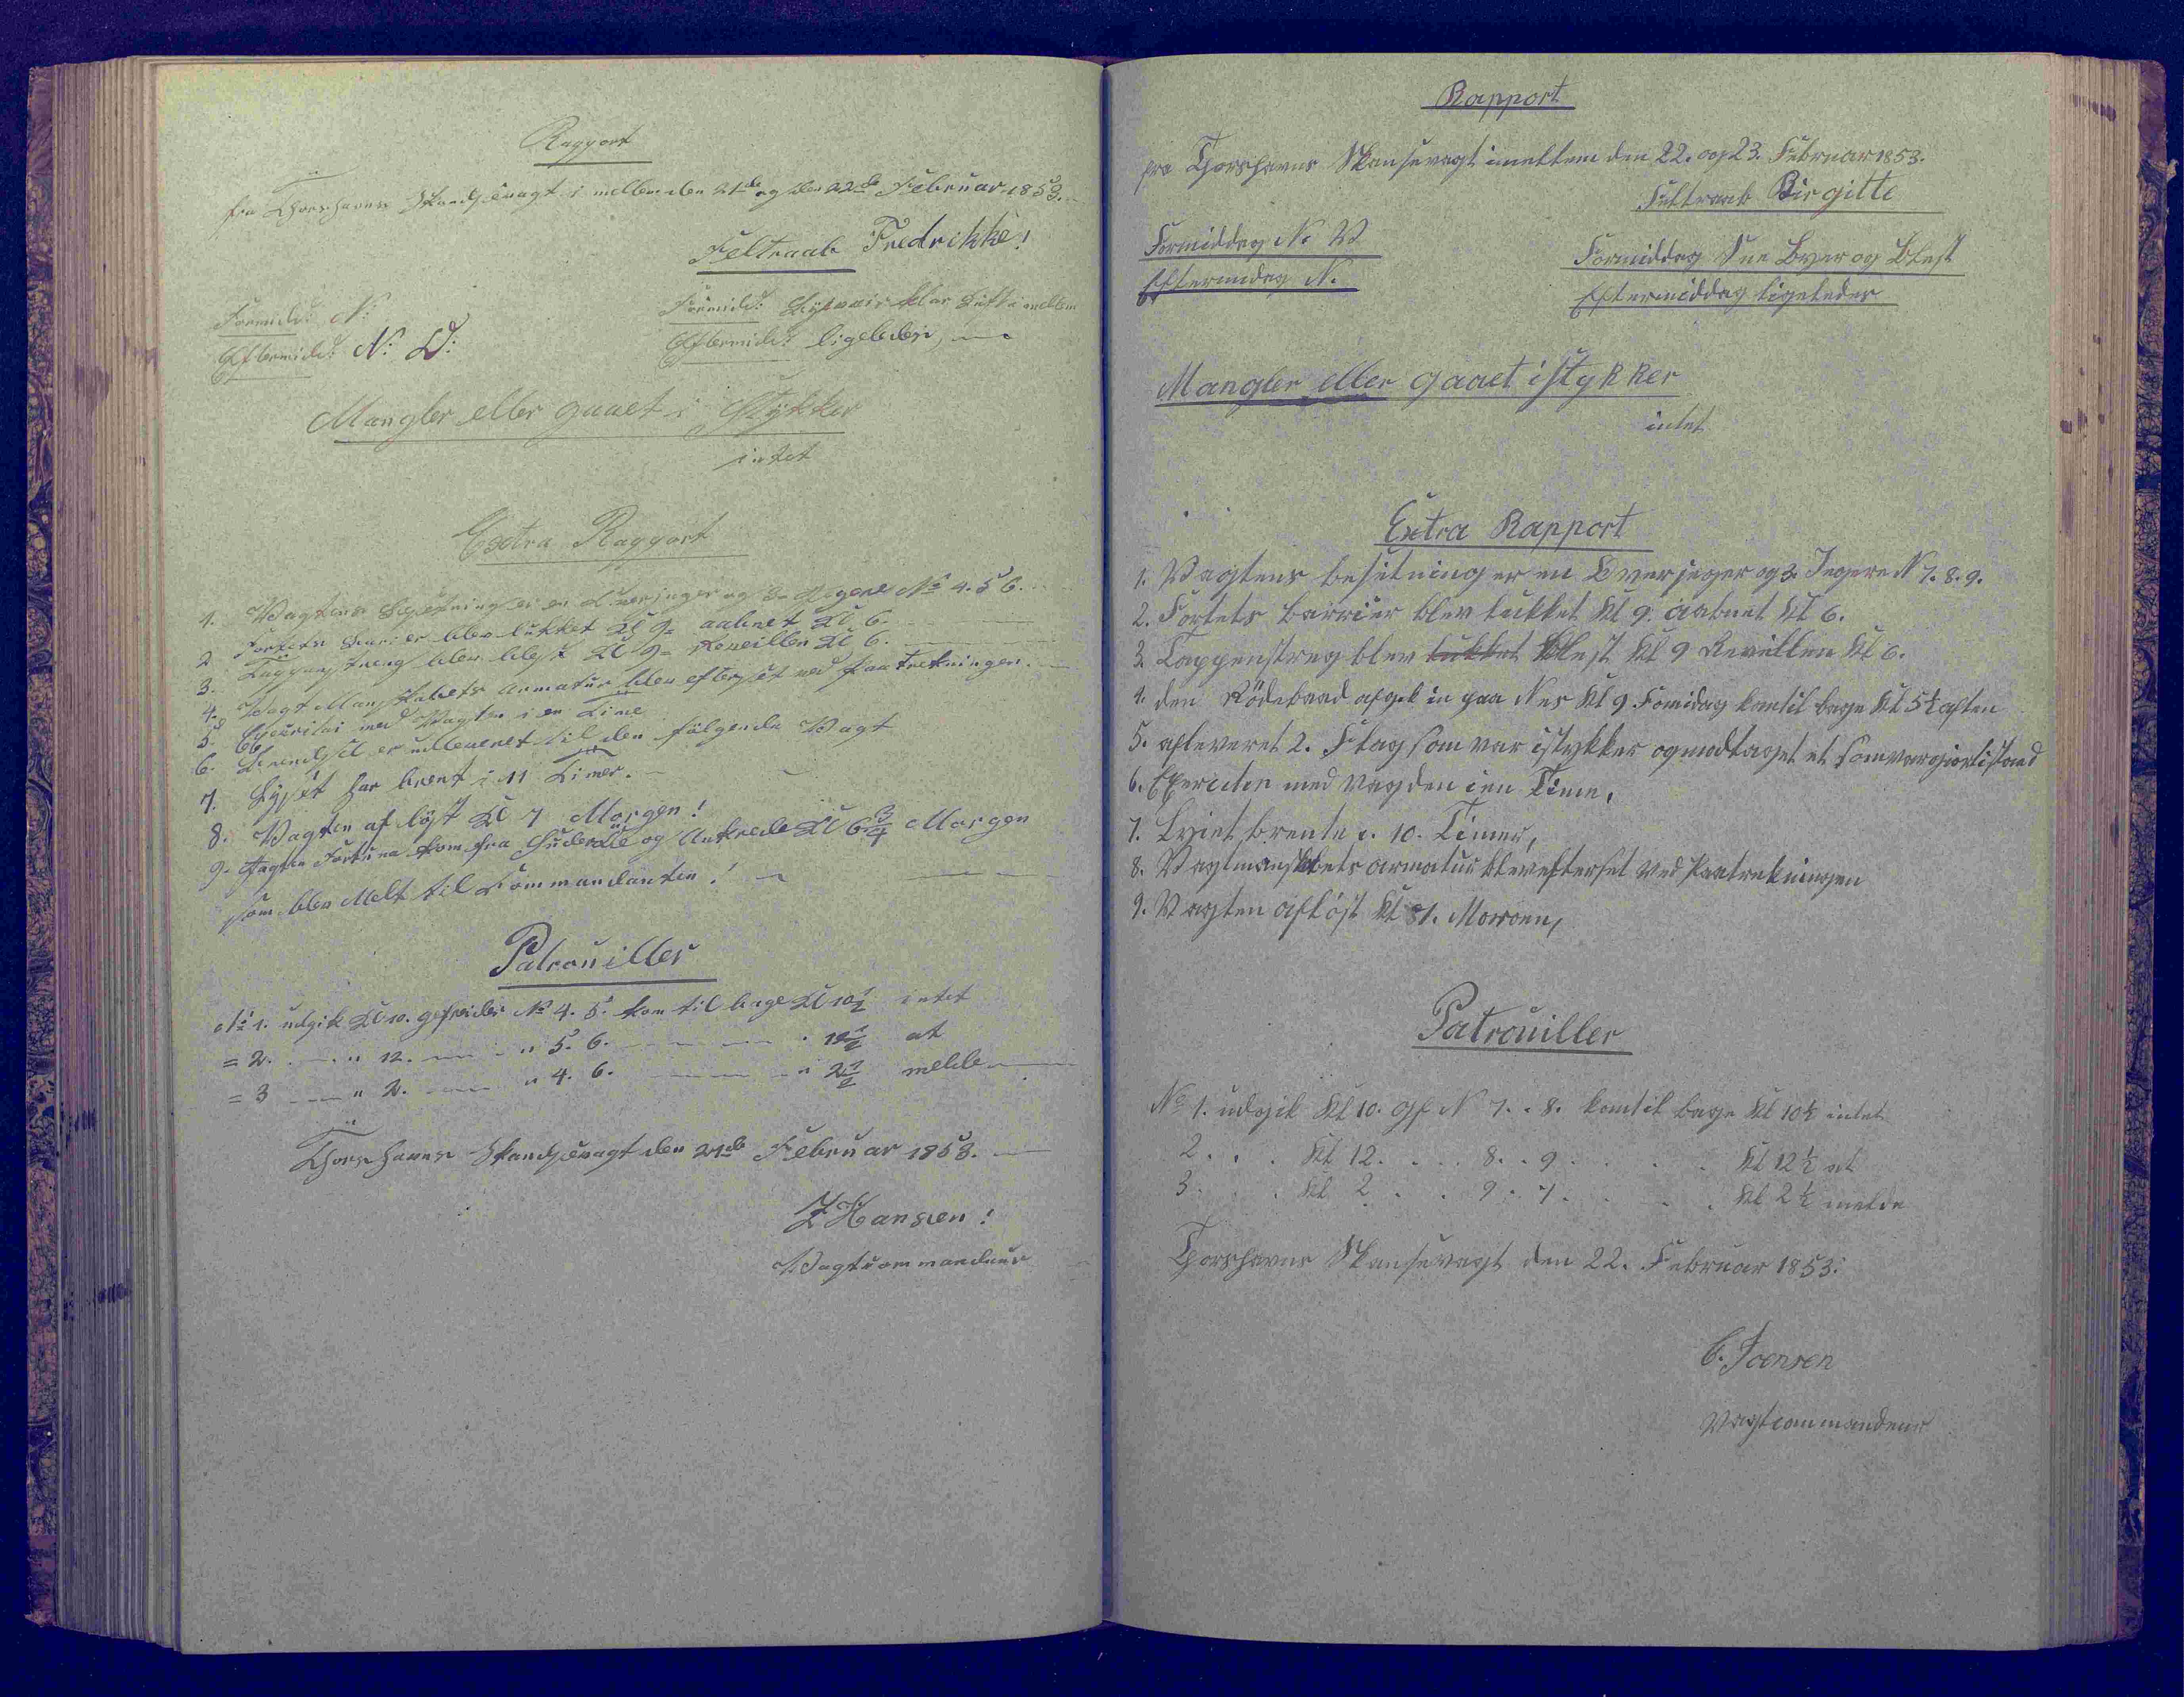 Rapport
fra Thorshavns Skandsevagt i mellem den 21de og den 22de Februar 1853.
Feltraab Fredrikke!
Formidd: N:
Eftermidd: N: O:
Formidd: klar Luft i mellem
Eftermidd: ligeledes,
Mangler eller gaaet i Stykker
intet
Extra Rapport
1. Vagtens Besetning er en Overjæger og 3 Jægere No 4. 5 6.
2 Fortets Barrier blev lukket Kl 9 = aabnet Kl 6.
3. Tappenstreng blev blest Kl 9 = Reveillen Kl 6.
4. Vagt Mandskabets armatur blev efterset ved paa Trekningen.
5. Exerciti med Vagten i en Time
6. Brendsel er udleveret til den følgende Vagt
7. Lyset har brent i 11 Timer.
8. Vagten af løst Kl 7 Morgen!
9. Jagten Fortuna kom fra og Ankrede Kl 6 3/4 Morgen
som blev Melt til Commandanten!
Patrouiller
No 1. udgik Kl 10. gefreider No 4. 5. kom til bage Kl 10 1/2 intet
= 2. " 12. " 5. 6. " 12 1/2 at
= 3 " 2. " 4. 6. " 2 1/2 melde
Thorshavns Skandsevagt den 21de Februar 1853.
Z Hansen!
Vagtcommandeur
Rapport
fra Thorshavns Skansevagt imellem den 22. og 23. Februar 1853.
Feltraab Birgitte
Formiddag N. V
Eftermidag N.
Formiddag Sne Byer og Blest
Eftermiddag ligeledes
Mangler eller gaaet istykker
intet
Extra Rapport
1. Vagtens besetning er en Overjeger og 3. Jegere N 7. 8. 9.
2. Fortets barrier blev lukket Kl 9. aabnet Kl 6.
3. Tappenstreg blev lukket Blest Kl 9 Revellen Kl 6.
4. den Rødebaad afgik in paa Nes Kl 9 Fomidag kom til bage Kl 5 1/2 aften
5. afleveret 2. Flag som var istykker og modtaget et som var giort istand
6. Exerciten med Vagden i en Time,
7. Lyset brente i. 10. Timer,
8. Vagtmanskabets armatur blev efterset ved Paatrekningen
9. Vagten afløst Kl 7. Morgen,
Patrouiller
No 1. udgik Kl 10. Gf N 7. . 8. kom til bage Kl 10 1/2 intet
2. . . Kl 12. . . . 8. . 9 . . . . Kl 12 1/2 at
3. . . Kl 2 . . 9 . 7. . . . Kl 2 1/2 melde
Thorshavns Skansevagt den 22. Februar 1853.
C. Joensen
Vagtcommandeur